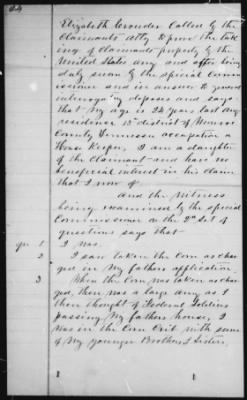 64
Elizabeth Crowder Called by the
Claimants Atty to prove the tak
ing of claimants property by the
United States army and after being
duly sworn by the special Comm
issioner and in answer to general
interrogatory deposes and says
that my age is 24 years last my
residence 12th district of Monroe
County Tennessee occupation a
House Keeper, I am a daughter
of the Claimant and have no
beneficial interest in his claim
that I now of.
And the witness
being examined by the special
Commissioner on the 2nd Set of
questions says that
qu 1 I was.
2 I saw taken the Corn as char
ged in My fathers application.
3 When the Corn was taken as char
ged, there was a large army as I
then thought of Federal Soldiers
passing My fathers house, I
was in the Corn Crib with some
of My younger Brothers & Sisters,